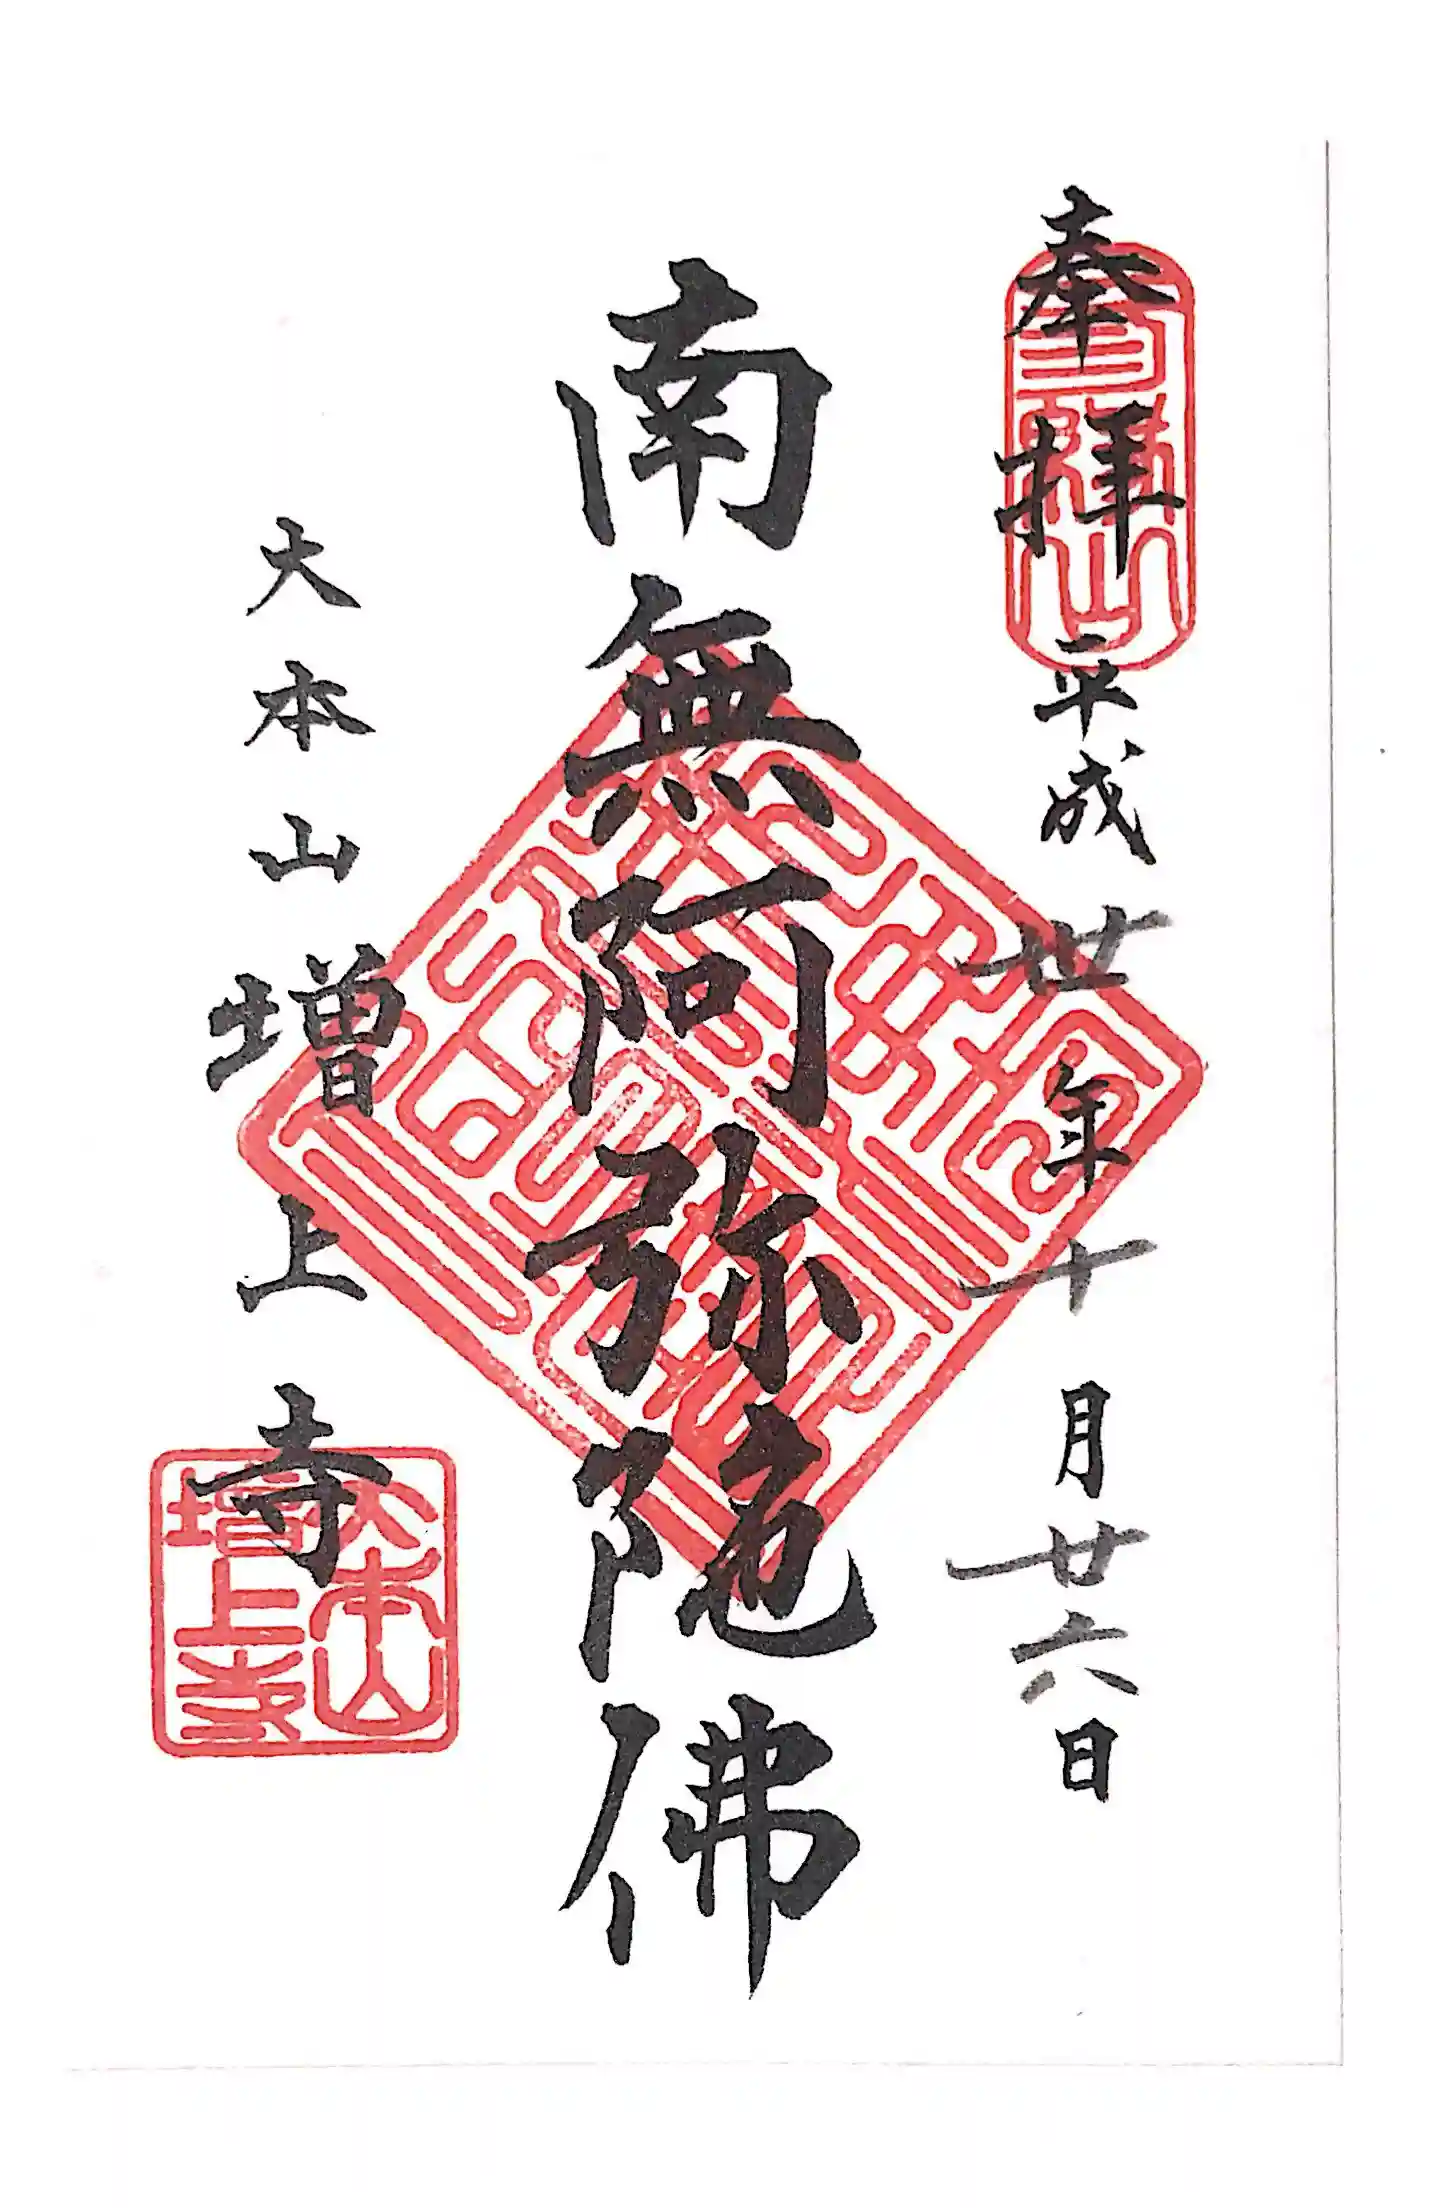 奉拝
平成丗年十月廿六日
三縁山
南無阿弥陀佛
大本山増上寺
大本山
増上寺